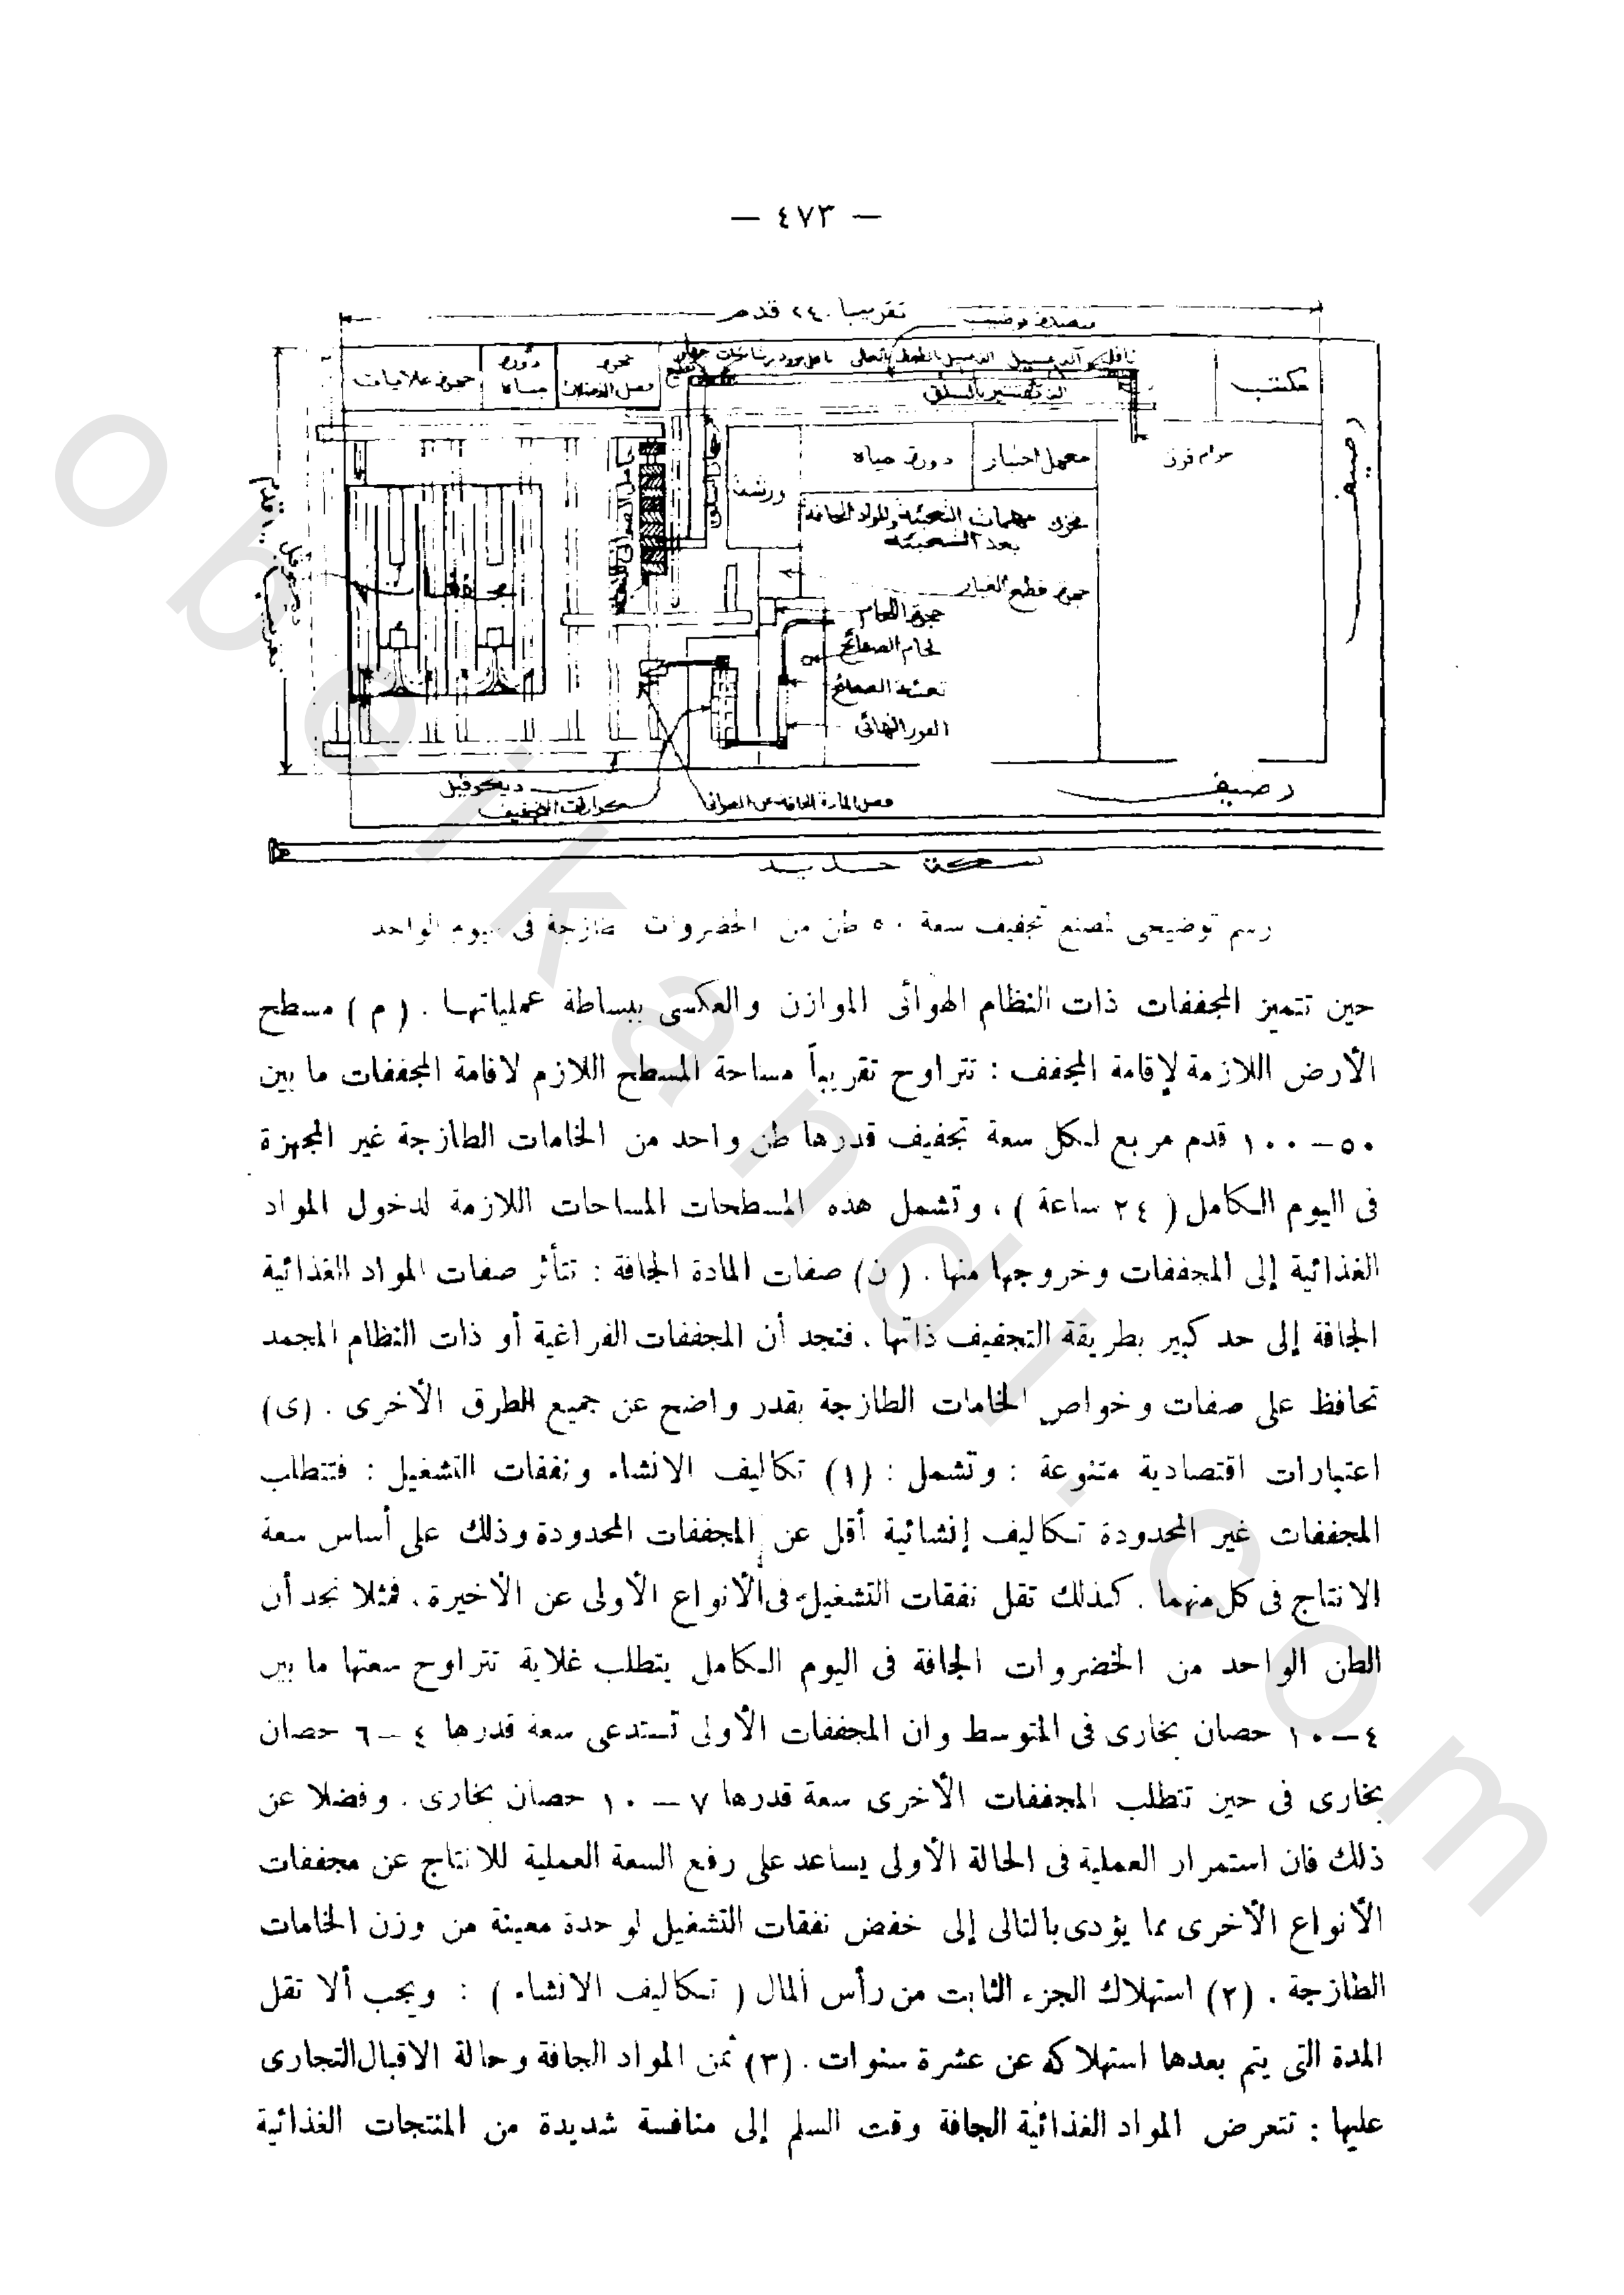 — ٤٧٣ —
تقريبا ٢٤٠ قدم
مكتب
حجرة غلايات
دورة مياه
فصل الفضلات
آلة تقشير بالسلق
معمل اختبار
دورة مياه
ورشة
حزام فرز
رصيف
مخزن مهمات التعبئة والمواد الجافة
بعد التعبئة
حجرة قطع الغيار
حجرة اللحام
لحام الصفائح
تعبئة الصفائح
الفرز النهائى
مجففات
ديكوفيل
فصل المادة الجافة عن الصوانى
رصيف
سكة حديد
رسم توضيحى لمصنع تجفيف سعة ٥٠ طن من الخضروات الطازجة فى اليوم الواحد
حين تتميز المجففات ذات النظام الهوائى الموازن والعكسى ببساطة عملياتها . ( م ) مسطح
الأرض اللازمة لإقامة المجفف : تتراوح تقريباً مساحة المسطح اللازم لاقامة المجففات ما بين
٥٠ – ١٠٠ قدم مربع لكل سعة تجفيف قدرها طن واحد من الخامات الطازجة غير المجهزة
فى اليوم الكامل ( ٢٤ ساعة ) ، وتشمل هذه المسطحات المساحات اللازمة لدخول المواد
الغذائية إلى المجففات وخروجها منها . ( ن ) صفات المادة الجافة : تتأثر صفات المواد الغذائية
الجافة إلى حد كبير بطريقة التجفيف ذاتها . فنجد أن المجففات الفراغية أو ذات النظام المجمد
تحافظ على صفات وخواص الخامات الطازجة بقدر واضح عن جميع الطرق الأخرى . (ى)
اعتبارات اقتصادية متنوعة : وتشمل : (١) تكاليف الانشاء ونفقات التشغيل : فتتطلب
المجففات غير المحدودة تكاليف إنشائية أقل عن المجففات المحدودة وذلك على أساس سعة
الانتاج فى كل منهما . كذلك تقل نفقات التشغيل فى الأنواع الأولى عن الأخيرة . فمثلا نجد أن
الطن الواحد من الخضروات الجافة فى اليوم الكامل يتطلب غلاية تتراوح سعتها ما بين
٤ – ١٠ حصان بخارى فى المتوسط وان المجففات الأولى تستدعى سعة قدرها ٤ – ٦ حصان
بخارى فى حين تتطلب المجففات الأخرى سعة قدرها ٧ – ١٠ حصان بخارى . وفضلا عن
ذلك فان استمرار العملية فى الحالة الأولى يساعد على رفع السعة العملية للانتاج عن مجففات
الأنواع الأخرى مما يؤدى بالتالى إلى خفض نفقات التشغيل لوحدة معينة من وزن الخامات
الطازجة . (٢) استهلاك الجزء الثابت من رأس المال ( تكاليف الانشاء ) : ويجب ألا تقل
المدة التى يتم بعدها استهلاكه عن عشرة سنوات . (٣) ثمن المواد الجافة وحالة الاقبال التجارى
عليها : تتعرض المواد الغذائية الجافة وقت السلم إلى منافسة شديدة من المنتجات الغذائية
obeikandi.com